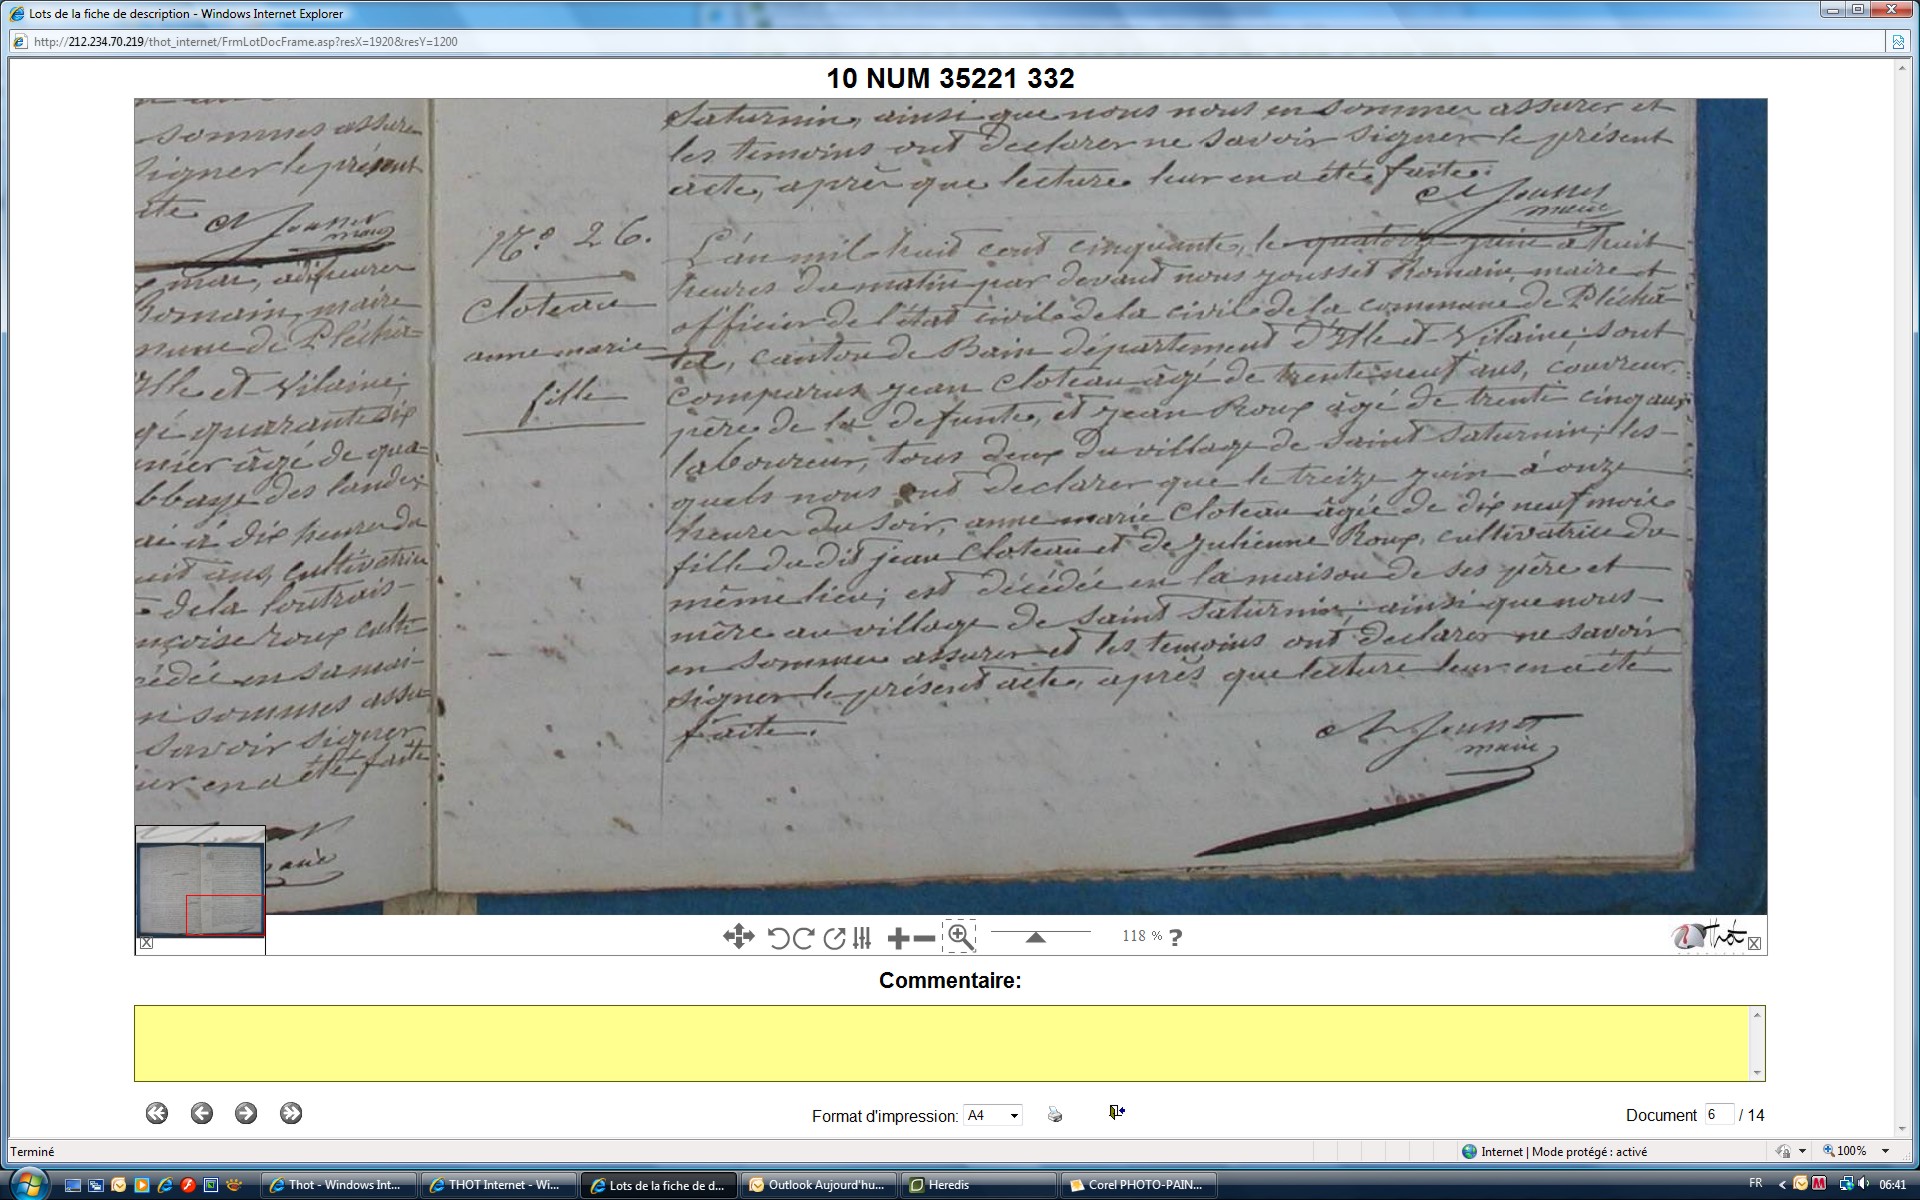 Lots de la fiche de description - Windows Internet Explorer
http://212.234.70.219/thot_internet/FrmLotDocFrame.asp?resX=1920&resY=1200
10 NUM 35221 332
sommes assure
signer le présent
cte
maire
mai, à dix heures
Romain, maire
mune de Pléchâ-
Ille et Vilaine;
gé quarante six
nier âgé de qua-
bbaye des landes
ai à dix heures du
uit ans, cultivatrice
de la
nçoise roux culti-
cédée en sa mai-
n sommes assu-
savoir signer
ur en a été faite
Saturnin, ainsi que nous nous en sommes assurer et
les temoins ont declarer ne savoir signer le présent
acte, après que lecture leur en a été faite.
Jousset
maire
N.º 26.
cloteau
anne marie
fille
L'an mil huit cent cinquante, le quatorze juin à huit
heures du matin par devant nous jousset Romain, maire et
officier de l'état civil de la civile de la commune de Pléchâ-
tel, canton de Bain département d'Ille et Vilaine, sont
comparus jean Cloteau âgé de trente neuf ans, couvreur,
père de la defunte, et jean Roux âgé de trente cinq ans
laboureur, tous deux du village de Saint Saturnin; les-
quels nous ont declarer que le treize juin à onze
heures du soir, anne marie Cloteau âgée de dix neuf mois
fille du dit jean Cloteau et de julienne Roux, cultivatrice du
même lieu; est décédée en la maison de ses père et
mère au village de Saint Saturnin; ainsi que nous
en sommes assurer et les temoins ont declarer ne savoir
signer le présent acte, après que lecture leur en a été
faite.
Jousset
maire
118 % ?
Thot
Commentaire:
Format d'impression: A4
Document 6 / 14
Terminé
Internet | Mode protégé : activé
100%
Thot - Windows Int...
THOT Internet - Wi...
Lots de la fiche de d...
Outlook Aujourd'hu...
Heredis
Corel PHOTO-PAIN...
FR
06:41